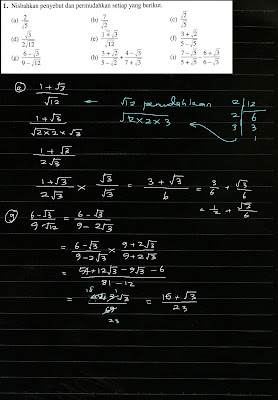 1. Nisbahkan penyebut dan permudahkan setiap yang berikut.
(a) 2/√5 (b) 7/√2 (c) √2/√5
(d) √3/2√12 (e) 1+√3/√12 (f) 3+√2/5−√5
(g) 6−√3/9−√12 (h) 3+√2/5−√2 + 4−√3/7+√3 (i) 7−√5/5+√5 ÷ 6+√3/6−√3
e) 1+√3/√12 ← √12 permudahkan 2 | 12
1+√3/√2×2×√3 √2×2×3 2 | 6
3 | 3
1+√3/2√3 1
1+√3/2√3 × √3/√3 = 3+√3/6 = 3/6 + √3/6
= 1/2 + √3/6
g) 6−√3/9−√12 = 6−√3/9−2√3
= 6−√3/9−2√3 × 9+2√3/9+2√3
= 54+12√3−9√3−6/81−12
= 48+3√3/69 = 16+√3/23
16 1
23